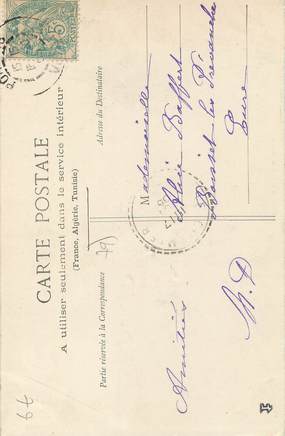 CARTE POSTALE
A utiliser seulement dans le service intérieur
(France, Algérie, Tunisie)
Partie réservée à la Correspondance
Adresse du Destinataire
Amitiés
M. D
Mademoiselle
Alice Baffert
Boisset les Prévanches
Eure
5
79